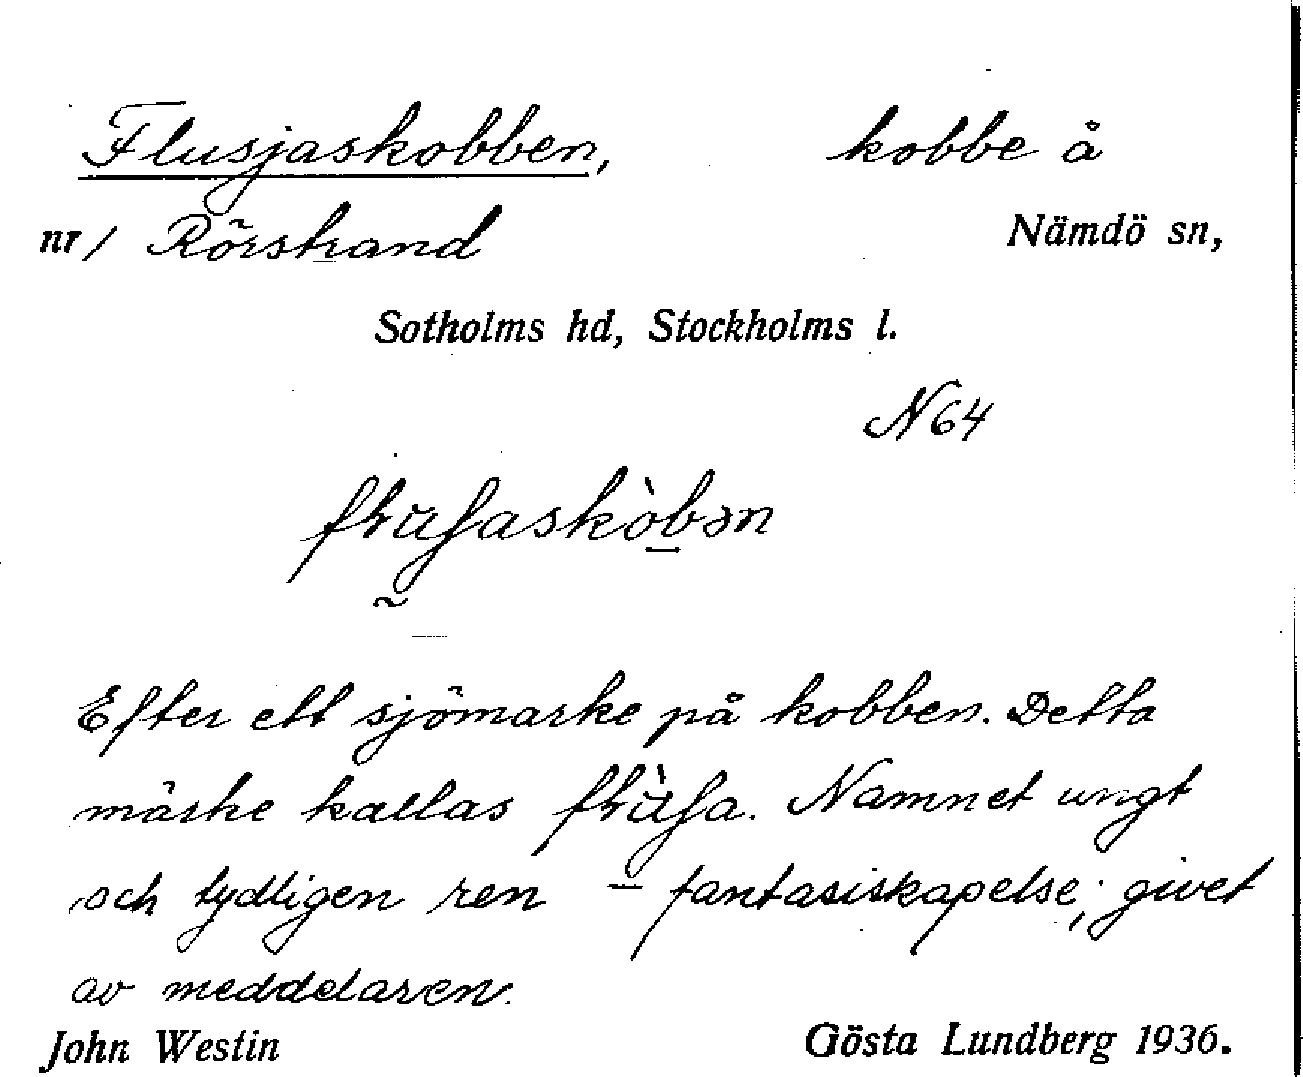 Flusjaskobben, kobbe å
nr / Rörstrand Nämdö sn,
Sotholms hd, Stockholms l.
N 64
Efter ett sjömärke på kobben. Detta
märke kallas Namnet ungt
och tydligen ren fantasiskapelse, givet
av meddelaren.
John Westin Gösta Lundberg 1936.